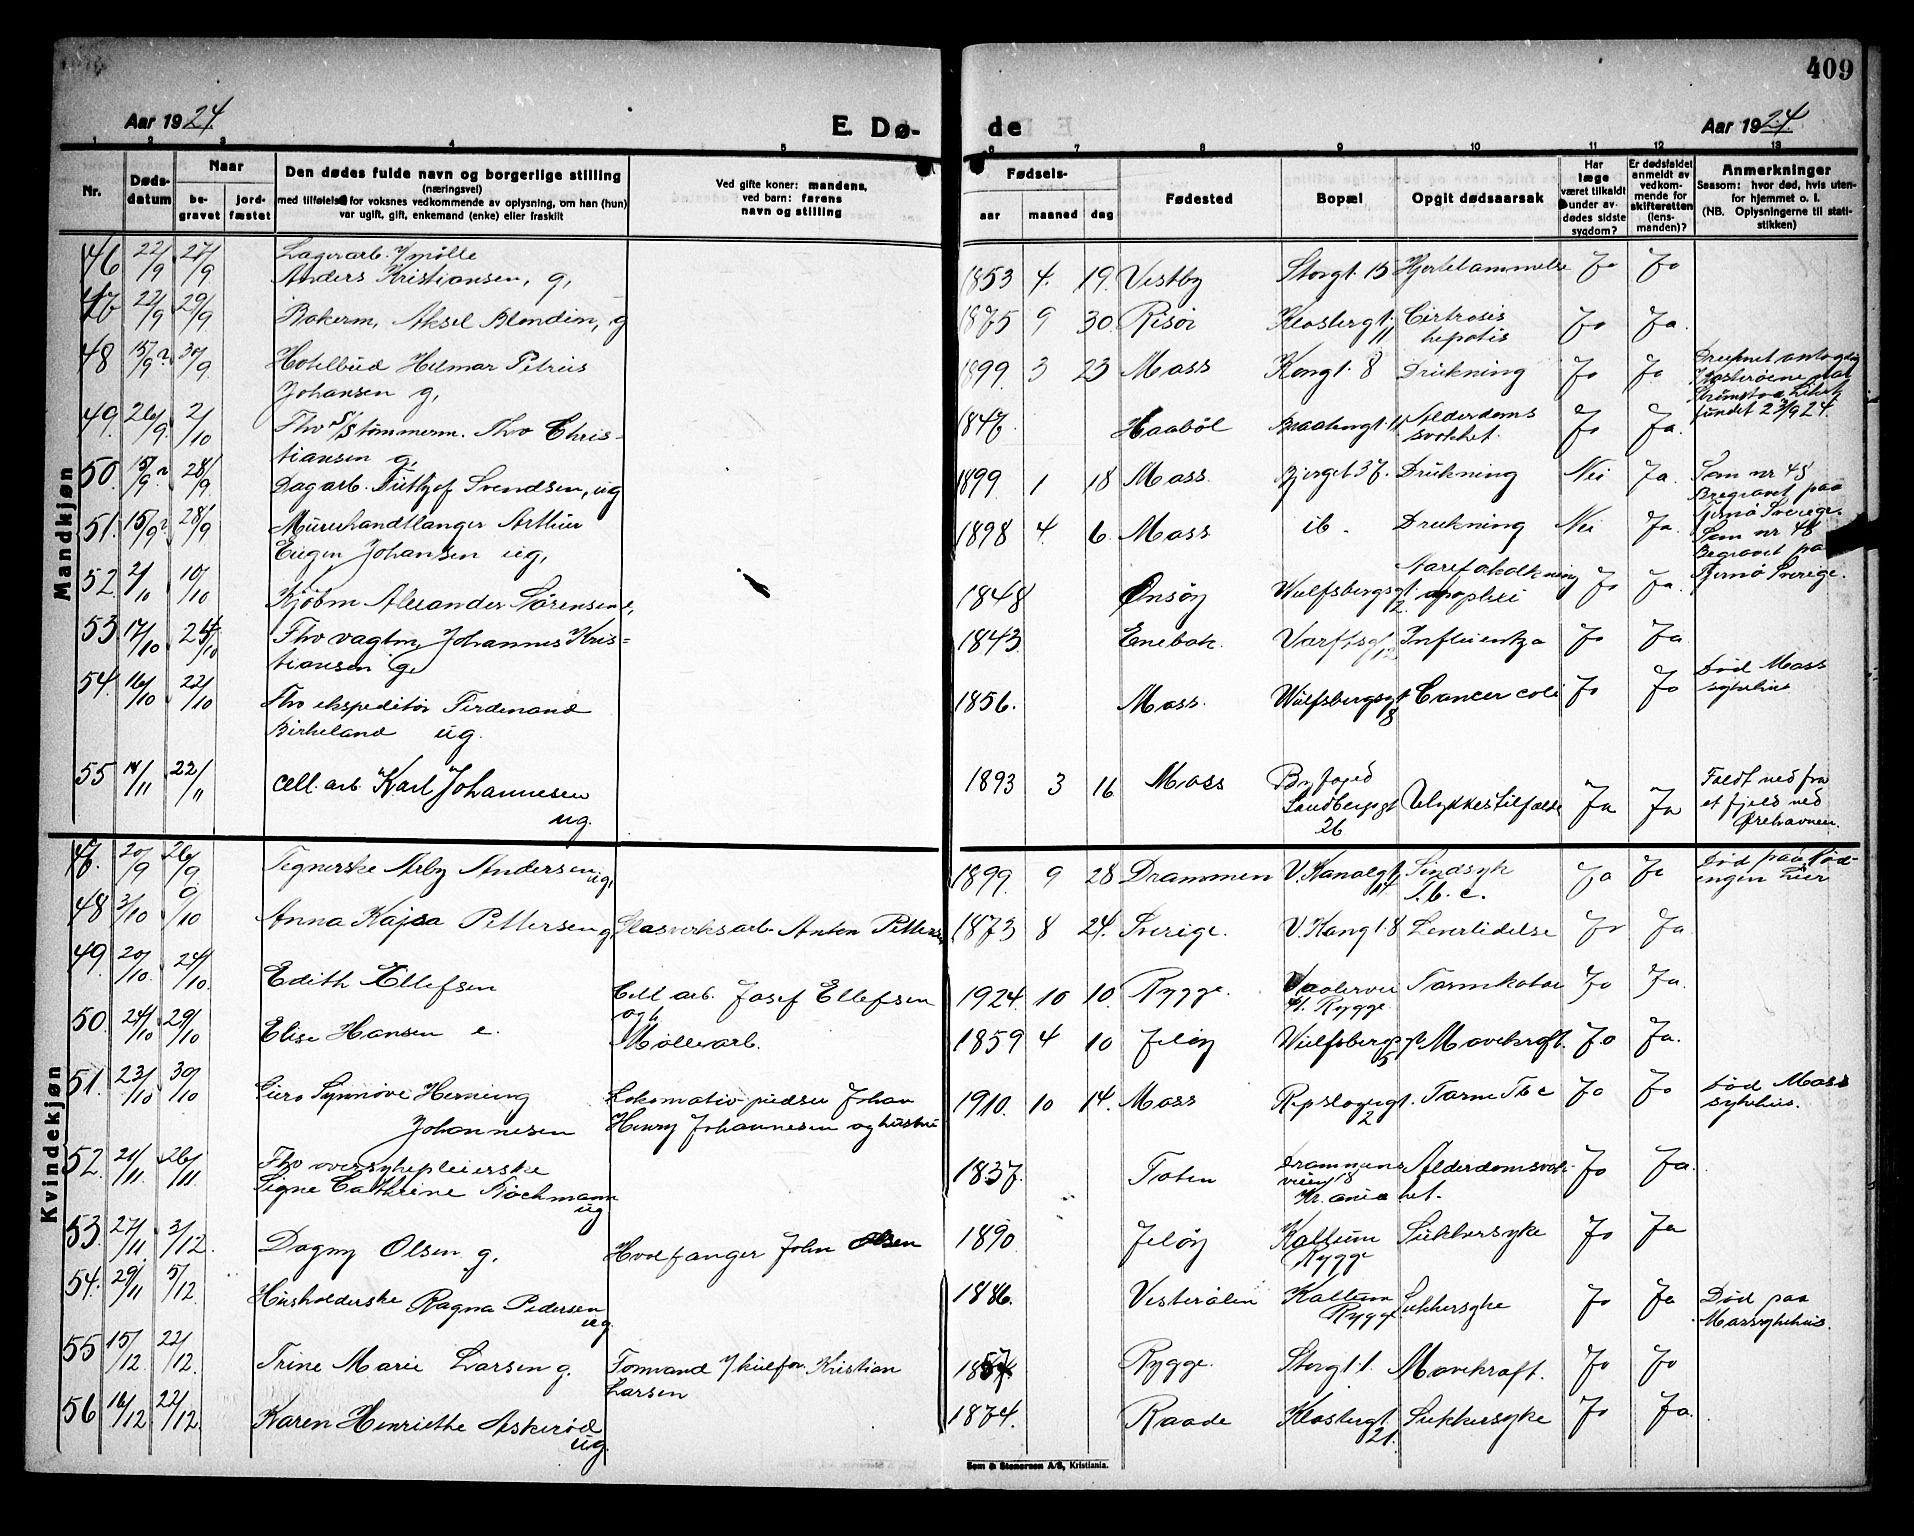 409
Aar 1924.
E. Dø-
de
Aar 1924.
1 2 3 4 5 6 7 8 9 10 11 12 13
Nr.
Døds-
datum
Naar
be-
gravet
jord-
fæstet
Den dødes fulde navn og borgerlige stilling
(næringsvei)
med tilføielse for voksnes vedkommende av oplysning, om han (hun)
var ugift, gift, enkemand (enke) eller fraskilt
Ved gifte koner: mandens,
ved barn: farens
navn og stilling
Fødsels-
aar maaned dag
Fødested
Bopæl
Opgit dødsaarsak
Har
læge
været tilkaldt
under av-
dødes sidste
sygdom?
Er dødsfaldet
anmeldt av
vedkom-
mende for
skifteretten
(lens-
manden)?
Anmerkninger
Seasom: hvor død, hvis uten-
for hjemmet o. l.
(NB. Oplysningerne til stati-
stikken)
Mandkjøn
46 22/9 27/9 Lagerarb. v/ mølle
Anders Kristiansen, g, 1853 4. 19. Vestby Storgt. 15 Hjertelammelse Ja Ja
47 22/9 29/9 Bakerm. Aksel Blondin, g 1875 9 30 Risör Klostergt. 11 Cirrosis
hepatis Ja Ja.
48 15/9? 30/9 Hotelbud Hilmar Petrus
Johansen g, 1899 3 23 Moss Kongt. 8 Drukning Ja Ja Druknet antagelig
fundet 23/9 24.
49. 26/9. 2/10 Fhv S/S tømmerm. Thv Chris-
tiansen g, 1847. Haaböl 11 Alderdoms
svakhet. Ja Ja.
50. 15/9? 28/9 Dagarb. Svendsen, ug 1899. 1 18 Moss. Bjerget 37. Drukning Nei Ja. Som nr 48
Begravet paa
Tjernø Sverige.
51. 15/9? 28/9 Murerhandtlanger Arthur
Eugen Johansen ug, 1898 4. 6. Moss ib. Drukning Nei Ja. Som nr 48
Begravet paa
Tjernø Sverige.
52. 2/10 10/10 Kjøbm Alexander Sørensen e, 1848 Onsøy Wulfsbergsgt
12. Aareforkalkning
apoplexi Ja Ja.
53 17/10 24/10 Fhv vagtm Johannes Kris-
tiansen g. 1843 Enebak. Varftsgt. Influentza Ja Ja
54. 16/10 22/10 Fhv ekspeditør Ferdinand
Birkeland ug. 1856. Moss. Wulfsbergsgt
8 Cancer coli Ja Ja Død Moss
sykehus
55 22/11 cell. arb. Karl Johannesen
ug. 1893 3 16 Moss Byfoged
Sandbergsgt
26 Ulykkestilfælde Ja Ja Faldt ned fra
et fjeld ved
Ørehavnen.
Kvindekjøn
47. 20/9 26/9 Tegnerske Arby Andersen ug, 1899. 9 28 Drammen V. Kanalgt
14 Sindsyk
T. b. c. Ja Ja Død paa Rød-
ingen hier
48 3/10 9/10 Anna Kajsa Pettersen g, Glasverksarb. Anton Pettersen 1873 8 24. Sverige. V. Kangt. 8 Leverlidelse Ja Ja.
49. 20/10 24/10. Edith Ellefsen Cell arb. Josef Ellefsen
ogh 1924. 10 10. Rygge. Vaalervei
41. Rygge Tarmkatar Ja Ja.
50. 24/10 29/10 Elise Hansen e. Møllearb. 1859 4 10 Jeløy Wulfsbergsgt
5 Mavekræft. Ja Ja.
51. 23/10 30/10 Guro Synnöve Herning
Johannesen Lokomotiv pudser Johan
Henry Johannesen og hustru 1910. 10 14. Moss Repslagergt.
2 Tarm Tbc Ja Ja Død Moss
sykehus.
52. 21/11 26/11 Fhv oversykepleierske
Signe Cathrine Köchmann
ug 1837. Toten Drammens
veien 18
Kr.ania Alderdomssvak-
het. Ja Ja.
53. 27/11. 3/12. Dagny Olsen g, Hvalfanger John Olsen 1890 Jeløy Kallum
Rygge Sukkersyke Ja Ja
54. 29/11 5/12. Husholderske Ragna Pedersen
ug. 1886. Vesterålen Kallum
Rygge Sukkersyke Ja Ja Død paa
Mossykehus.
55 15/12 22/12. Trine Marie Larsen g. Formand Kristian
Larsen Rygge. Storgt. 1. Mavekræft. Ja Ja
56 16/12 22/12. Karen Henriette Askeröd
ug. 1874. Raade Klostergt.
21. Sukkersyke Ja Ja.
Sem & Stenersen A/S, Kristiania.